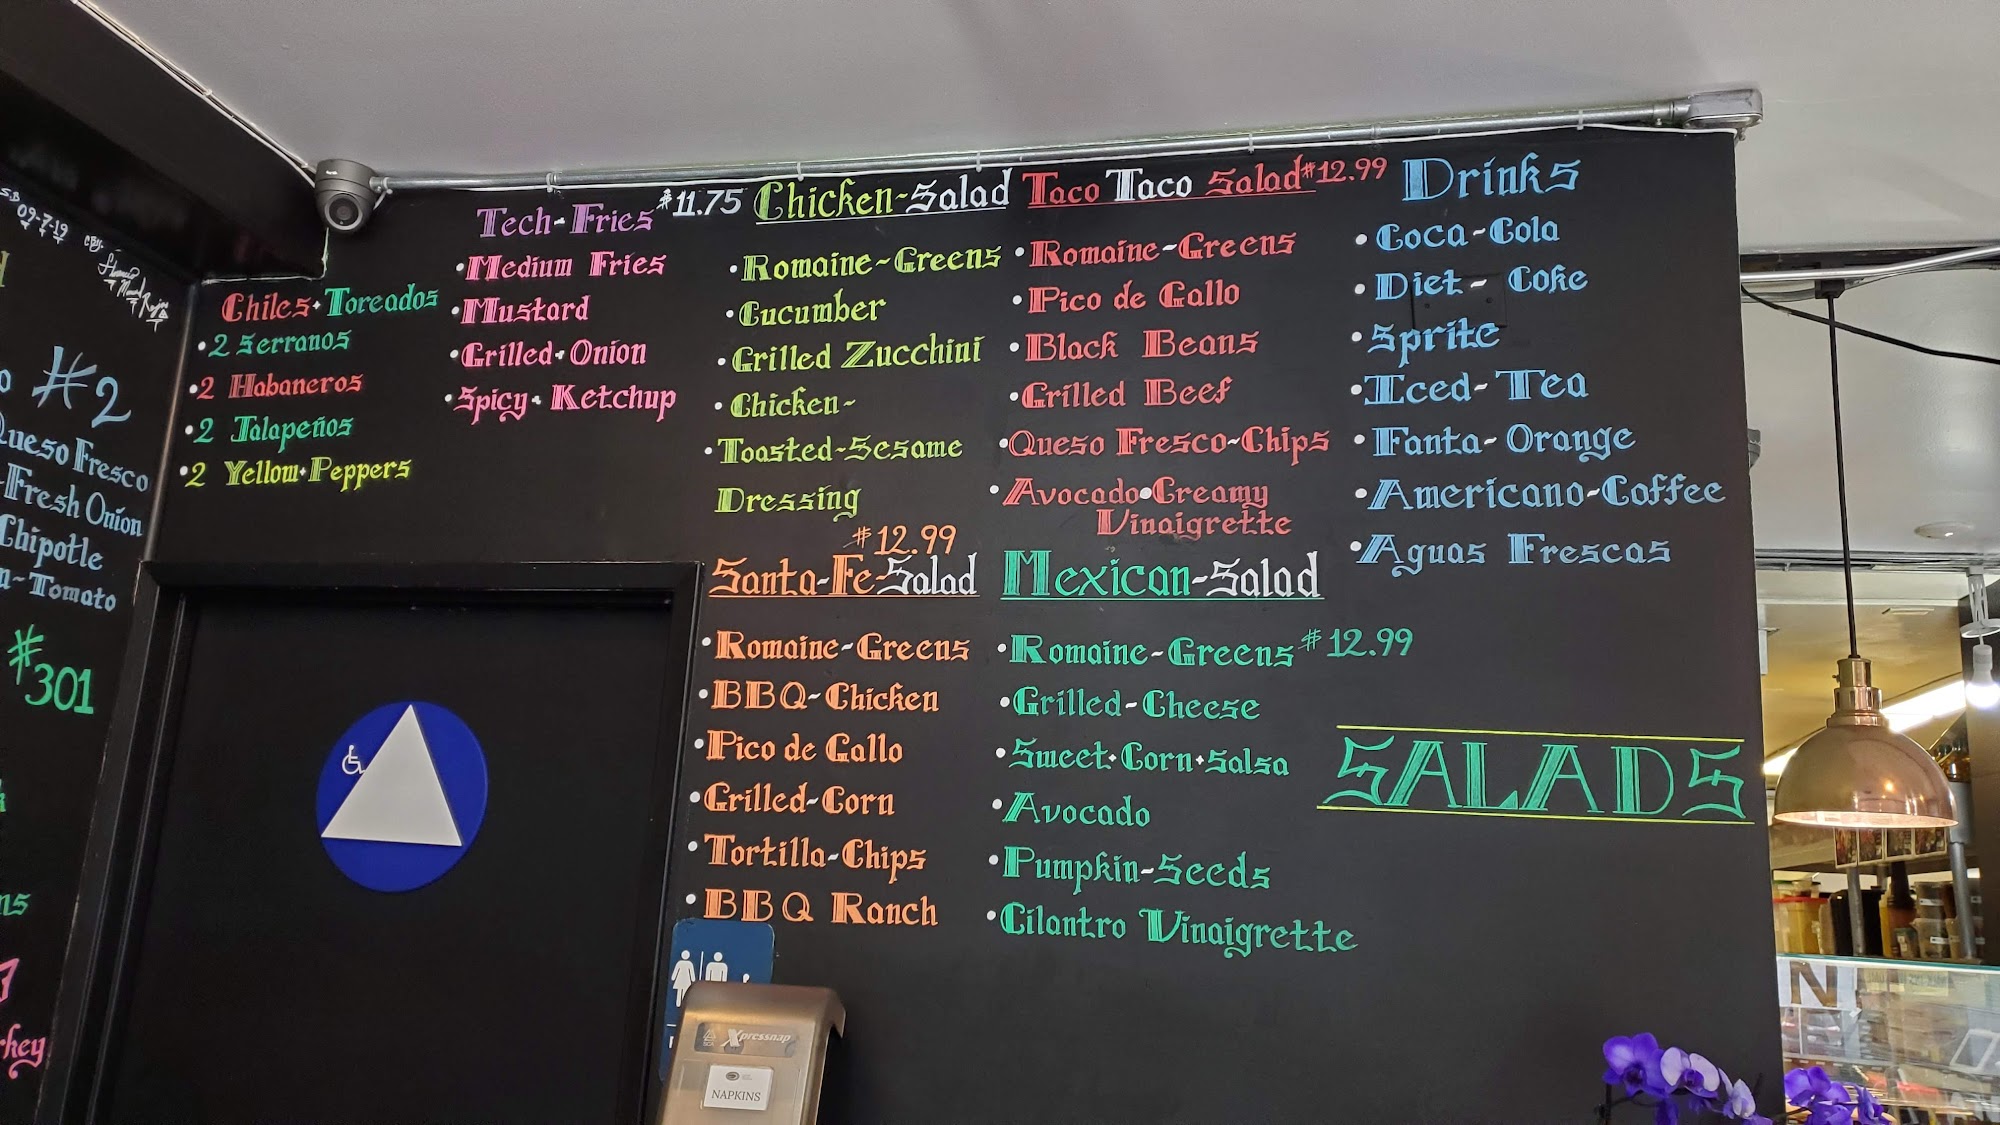 09-7-19
#2
Queso Fresco
Fresh Onion
Chipotle
Tomato
#301
Chiles·Toreados
•2 Serranos
•2 Habaneros
•2 Jalapeños
•2 Yellow·Peppers
Tech-Fries
•Medium Fries
•Mustard
•Grilled·Onion
•Spicy·Ketchup
$11.75 Chicken-Salad
•Romaine-Greens
•Cucumber
•Grilled Zucchini
•Chicken-
•Toasted-Sesame
Dressing
Taco Taco Salad $12.99
•Romaine-Greens
•Pico de Gallo
•Black Beans
•Grilled Beef
•Queso Fresco-Chips
•Avocado•Creamy
Vinaigrette
Drinks
•Coca-Cola
•Diet- Coke
•Sprite
•Iced-Tea
•Fanta-Orange
•Americano-Coffee
•Aguas Frescas
$12.99
Santa-Fe-Salad
•Romaine-Greens
•BBQ-Chicken
•Pico de Gallo
•Grilled-Corn
•Tortilla-Chips
•BBQ Ranch
Mexican-Salad
•Romaine-Greens $12.99
•Grilled-Cheese
•Sweet·Corn·Salsa
•Avocado
•Pumpkin-Seeds
•Cilantro Vinaigrette
SALADS
Xpressnap
NAPKINS